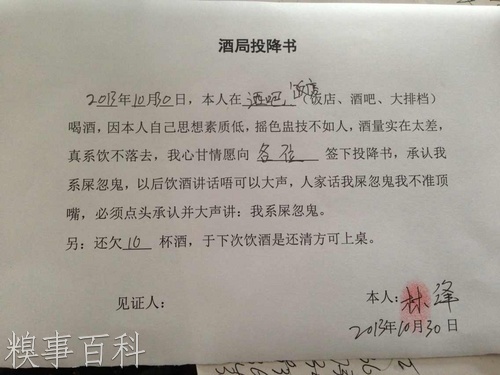 酒局投降书
2013年10月30日，本人在 酒吧，饭店（饭店、酒吧、大排档）
喝酒，因本人自己思想素质低，摇色盅技不如人，酒量实在太差，
真系饮不落去，我心甘情愿向 各位 签下投降书，承认我
系屎忽鬼，以后饮酒讲话唔可以大声，人家话我屎忽鬼我不准顶
嘴，必须点头承认并大声讲：我系屎忽鬼。
另：还欠 10 杯酒，于下次饮酒是还清方可上桌。
见证人：
本人：林泽
2013年10月30日
糗事百科